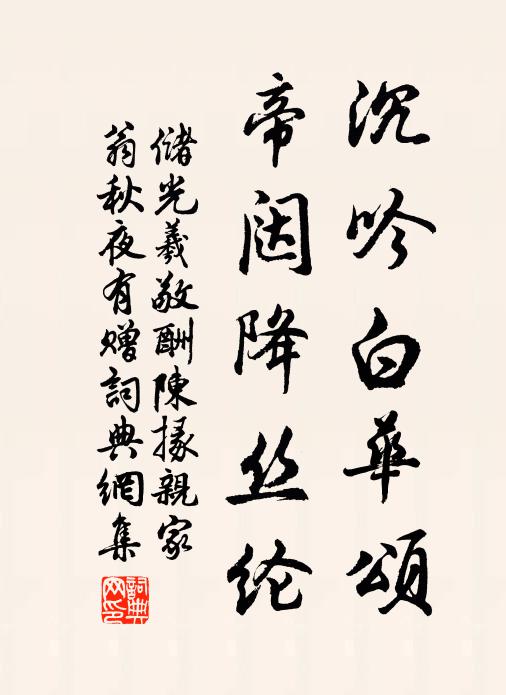 沉吟白華頌
帝闼降丝纶
儲光羲敬酬陳掾親家
翁秋夜有贈詞典網集
詞典
网印